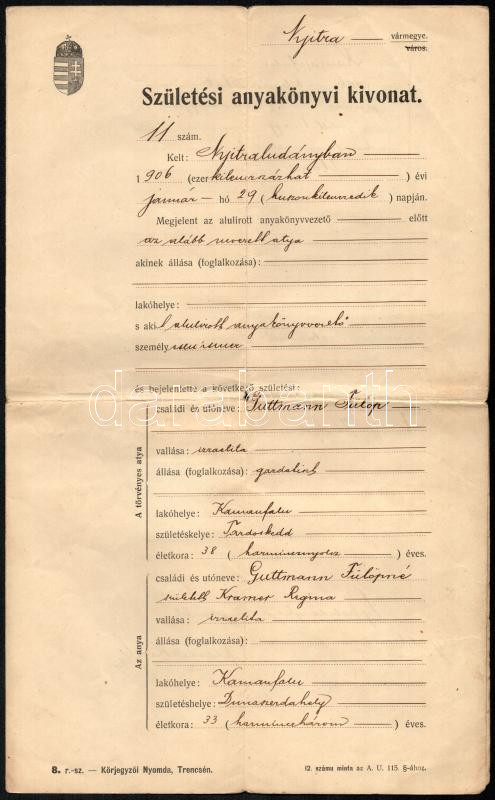 Nyitra vármegye.
város.
Születési anyakönyvi kivonat.
11 szám.
Kelt: Nyitraludányban
1906 (ezerkilencszázhat) évi
január hó 29 (huszonkilenczedik) napján.
Megjelent az alulirott anyakönyvvezető előtt
az alább nevezett atya
akinek állása (foglalkozása):
lakóhelye:
s aki alulirott anyakönyvvezető
személyesen ismer
és bejelentette a következő születést:
A törvényes atya
családi és utóneve: Guttmann Fülöp
vallása: izraelita
állása (foglalkozása):
lakóhelye: Kamanfalu
születéskelye: Tardoskedd
életkora: 38 (harmincznyolcz) éves.
Az anya
családi és utóneve: Guttmann Fülöpné
született Kramer Regina
vallása: izraelita
állása (foglalkozása):
lakóhelye: Kamanfalu
születéshelye: Dunaszerdahely
életkora: 33 (harminczhárom) éves.
8. r.-sz. — Körjegyzői Nyomda, Trencsén.
12. számu minta az A. U. 115. §-ához.
darabanth